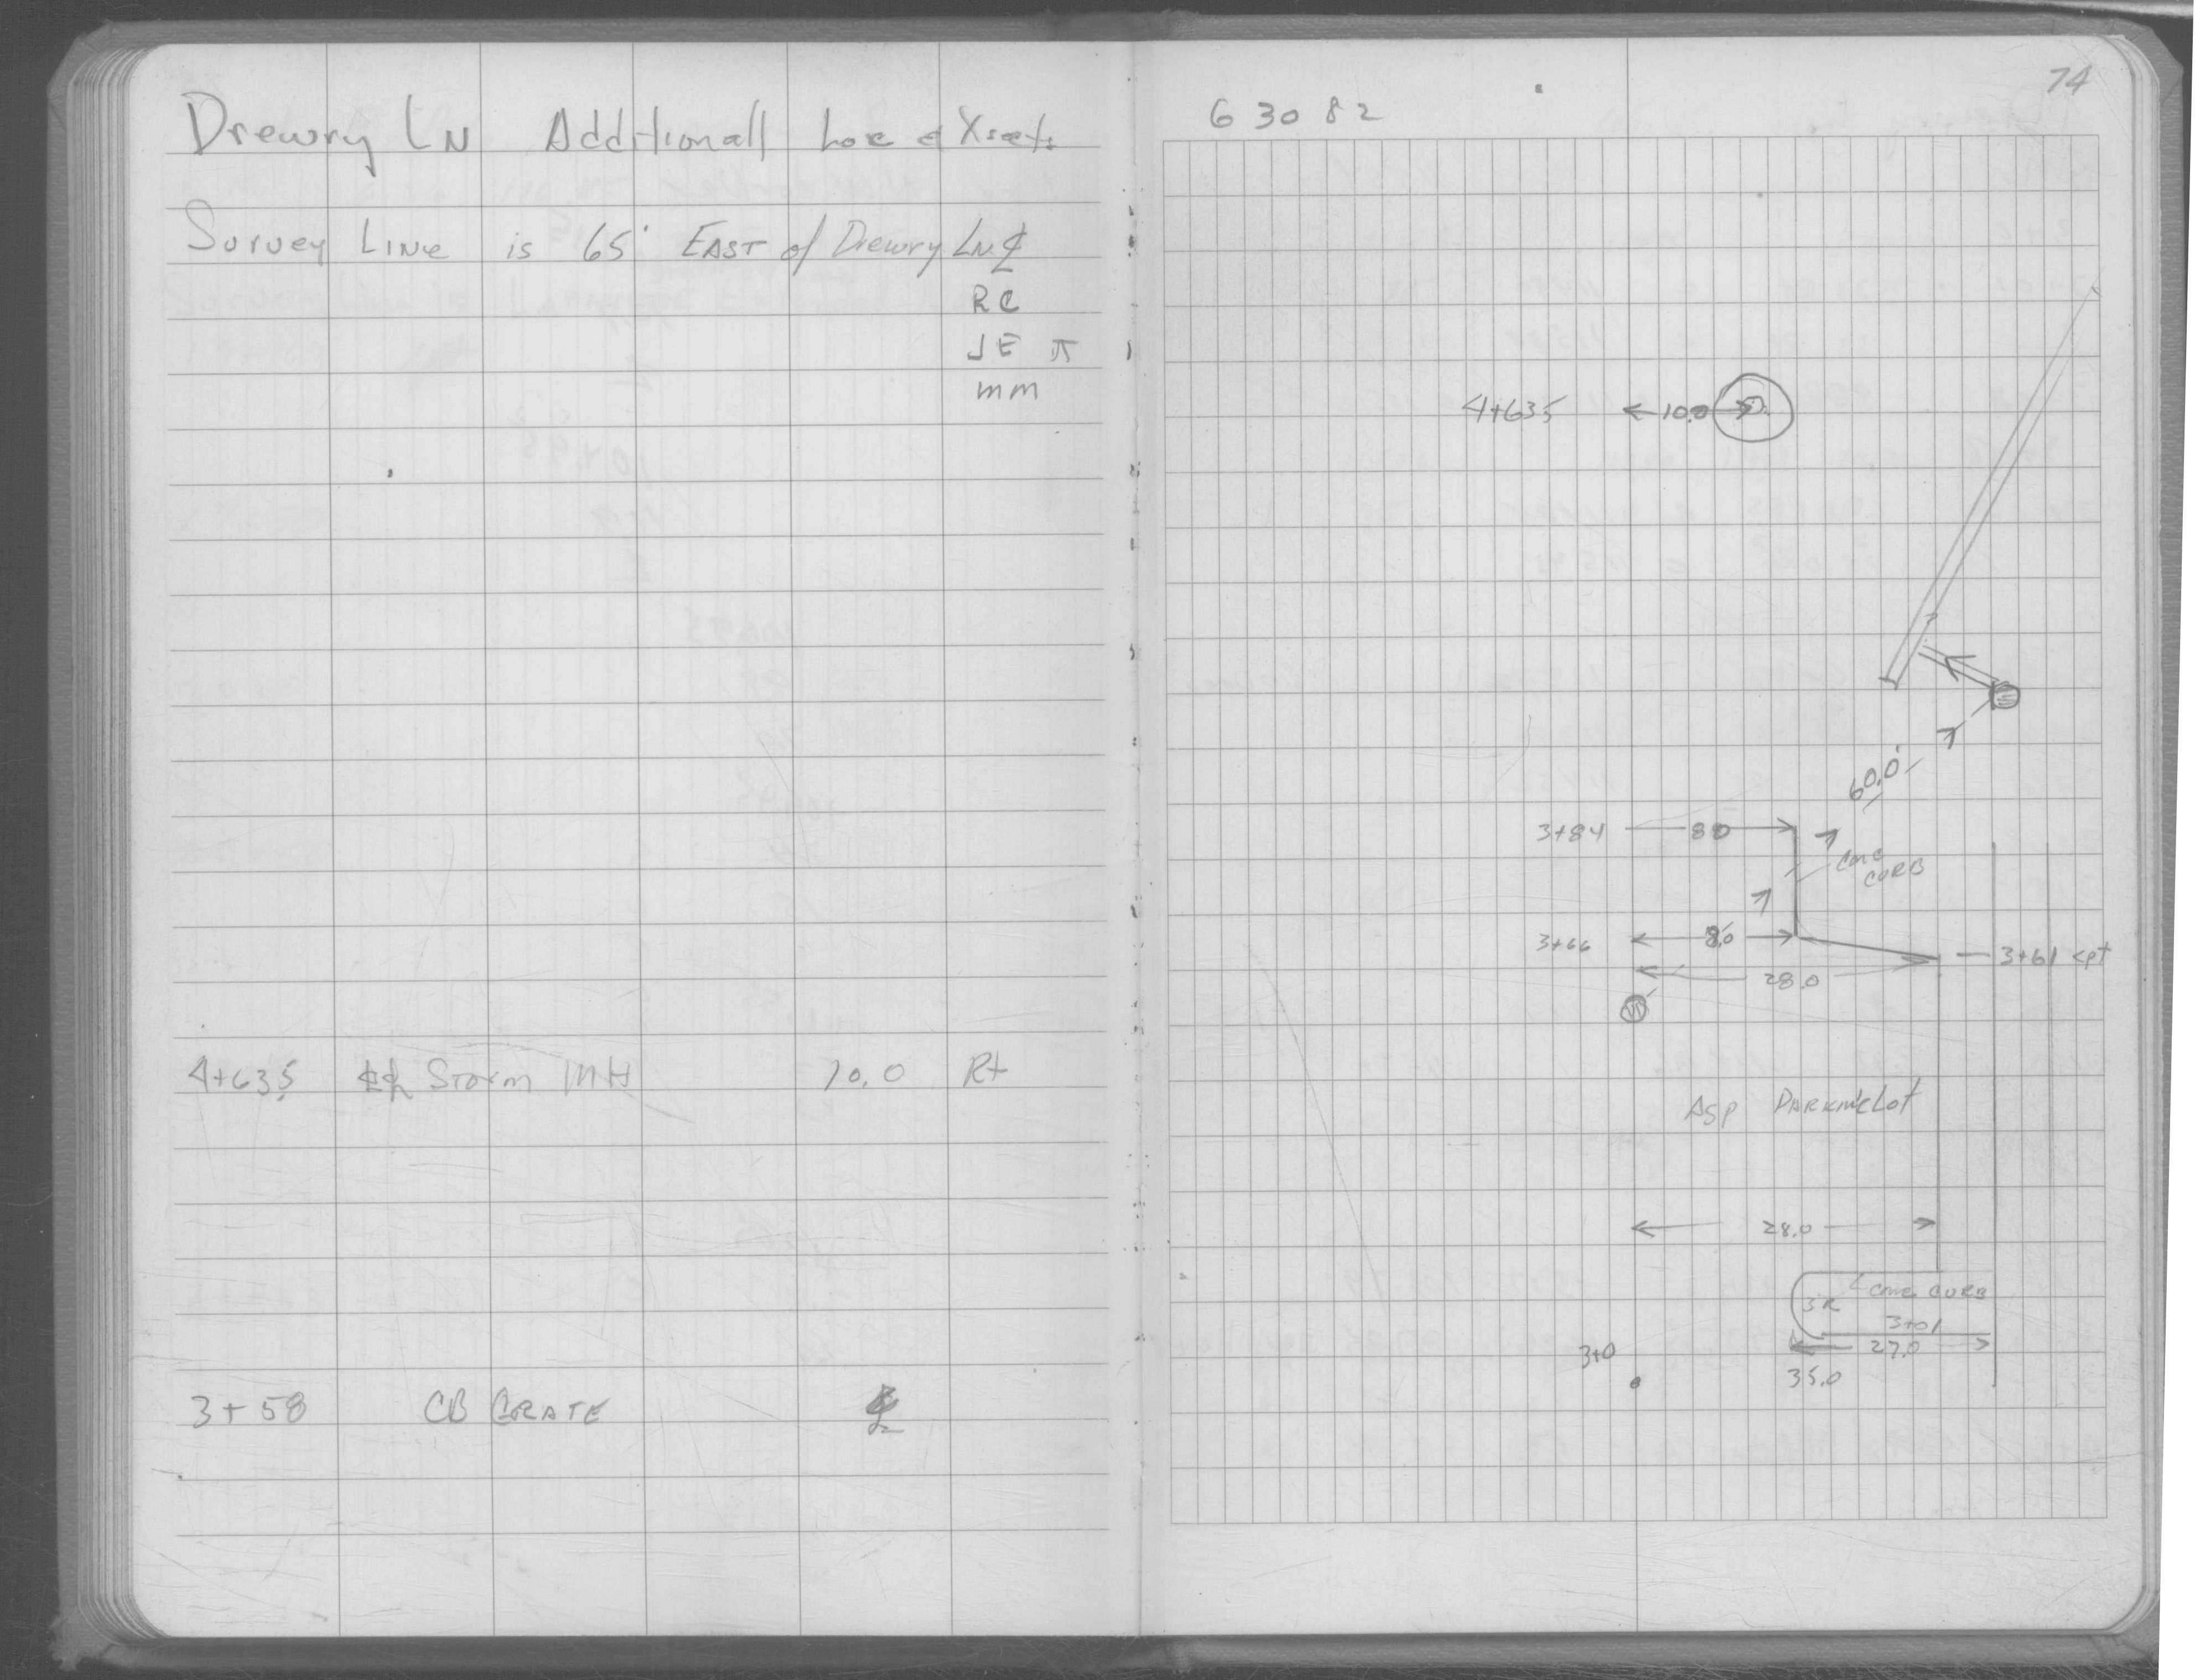 Drewry LN Additionall Loc & Xsects
Survey Line is 65' EAST of Drewry LN ℄
RC
JE π
mm
4+63.5 ℄ Storm MH 10.0 Rt
3+58 CB GRATE ℄
74
6 30 82
4+63.5 10.0
60.0'
3+84 8.0
Conc
CURB
3+66 8.0
28.0
3+61
Asp Parkin'g Lot
28.0
3R Conc CURB
3+01
3+0 27.0
35.0